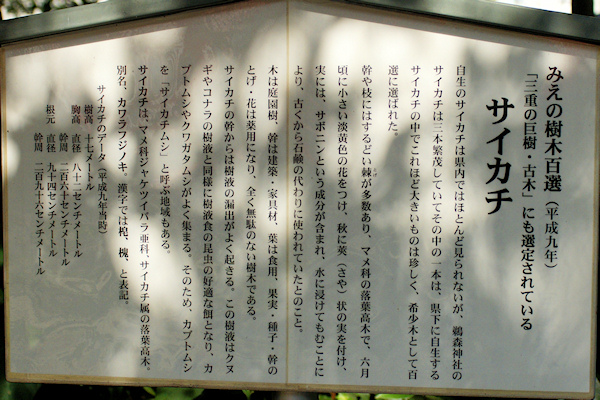 みえの樹木百選（平成九年）
「三重の巨樹・古木」にも選定されている
サイカチ
自生のサイカチは県内ではほとんど見られないが、鵜森神社の
サイカチは三本繁茂していてその中の一本は、県下に自生する
サイカチの中でこれほど大きいものは珍しく、希少木として百
選に選ばれた。
幹や枝にはするどい棘が多数あり、マメ科の落葉高木で、六月
頃に小さい淡黄色の花をつけ、秋に莢（さや）状の実を付け、
実には、サポニンという成分が含まれ、水に浸けてもむことに
より、古くから石鹸の代わりに使われていたとのこと。
木は庭園樹、幹は建築・家具材、葉は食用、果実・種子・幹の
とげ・花は薬用になり、全く無駄のない樹木である。
サイカチの幹からは樹液の漏出がよく起きる。この樹液はクヌ
ギやコナラの樹液と同様に樹液食の昆虫の好適な餌となり、カ
ブトムシやクワガタムシがよく集まる。そのため、カブトムシ
を「サイカチムシ」と呼ぶ地域もある。
サイカチは、マメ科ジャケツイバラ亜科、サイカチ属の落葉高木。
別名、カワラフジノキ。漢字では梍、槐、と表記。
サイカチのデータ（平成九年当時）
樹高 十七メートル
胸高 直径 八十二センチメートル
幹周 二百六十センチメートル
根元 直径 九十四センチメートル
幹周 二百九十六センチメートル